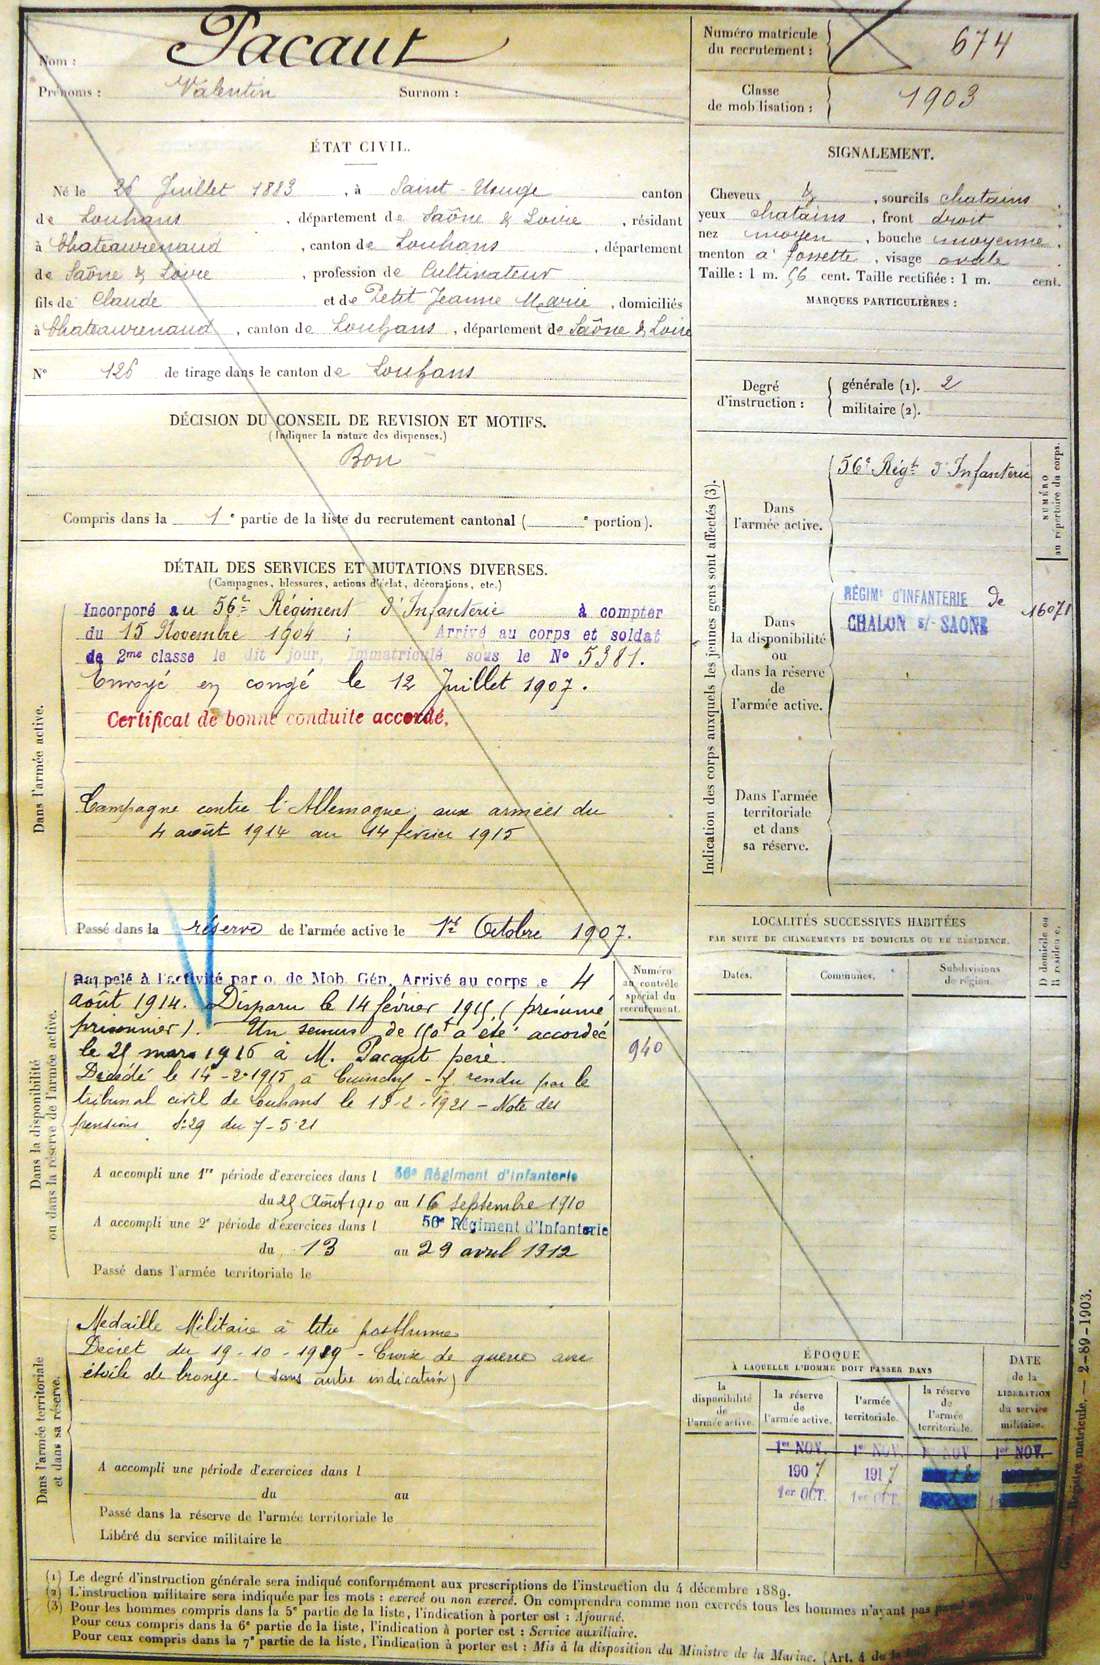 Nom : Pacaut
Prénoms : Valentin Surnom :
ÉTAT CIVIL.
Né le 26 Juillet 1883, à Saint-Usuge canton
de Louhans, département de Saône & Loire, résidant
à Chateaurenaud, canton de Louhans, département
de Saône & Loire, profession de Cultivateur
fils de Claude et de Petit Jeanne Marie, domiciliés
à Chateaurenaud, canton de Louhans, département de Saône & Loire
N° 126 de tirage dans le canton de Louhans
DÉCISION DU CONSEIL DE REVISION ET MOTIFS.
(Indiquer la nature des dispenses.)
Bon
Compris dans la 1e partie de la liste du recrutement cantonal ( e portion).
DÉTAIL DES SERVICES ET MUTATIONS DIVERSES.
(Campagnes, blessures, actions d'éclat, décorations, etc.)
Dans l'armée active.
Incorporé au 56e Régiment d'Infanterie à compter
du 15 Novembre 1904 ; Arrivé au corps et soldat
de 2me classe le dit jour, Immatriculé sous le N° 5381.
Envoyé en congé le 12 Juillet 1907.
Certificat de bonne conduite accordé.
Campagne contre l'Allemagne aux armées du
4 août 1914 au 14 février 1915
Passé dans la réserve de l'armée active le 1er Octobre 1907.
Dans la disponibilité
ou dans la réserve de l'armée active.
Rappelé à l'activité par o. de Mob. Gén. Arrivé au corps le 4
août 1914. Disparu le 14 février 1915 (présumé
prisonnier). Un secours de 150f a été accordé
le 25 mars 1916 à M. Pacaut père.
Décédé le 14-2-1915 à Cuinchy - J. rendu par le
tribunal civil de Louhans le 13-2-1921 - Note des
pensions du 7-5-21
Numéro
au contrôle
spécial du
recrutement.
940
A accompli une 1re période d'exercices dans l 56e Régiment d'Infanterie
du 25 Août 1910 au 16 Septembre 1910
A accompli une 2e période d'exercices dans l 56e Régiment d'Infanterie
du 13 au 29 avril 1912
Passé dans l'armée territoriale le
Dans l'armée territoriale
et dans sa réserve.
Medaille Militaire à titre posthume
Décret du 19-10-1919 - Croix de guerre avec
étoile de bronze - (sans autre indication)
A accompli une période d'exercices dans l
du au
Passé dans la réserve de l'armée territoriale le
Libéré du service militaire le
Numéro matricule
du recrutement : 674
Classe
de mobilisation : 1903
SIGNALEMENT.
Cheveux &, sourcils chatains,
yeux chatains, front droit
nez moyen, bouche moyenne,
menton à fossette, visage ovale
Taille : 1 m. 56 cent. Taille rectifiée : 1 m. cent.
MARQUES PARTICULIÈRES :
Degré
d'instruction :
générale (1). 2
militaire (2).
Indication des corps auxquels les jeunes gens sont affectés (3).
NUMÉRO
au répertoire du corps.
Dans
l'armée active.
56e Régt d'Infanterie
Dans
la disponibilité
ou
dans la réserve
de
l'armée active.
RÉGIMt d'INFANTERIE de
CHALON s/- SAONE
16071
Dans l'armée
territoriale
et dans
sa réserve.
LOCALITÉS SUCCESSIVES HABITÉES
PAR SUITE DE CHANGEMENTS DE DOMICILE OU DE RÉSIDENCE.
D domicile ou
R résidence.
Dates. Communes. Subdivisions
de région.
ÉPOQUE
À LAQUELLE L'HOMME DOIT PASSER DANS
DATE
de la
LIBÉRATION
du service
militaire.
la
disponibilité
de
l'armée active.
la réserve
de
l'armée active.
l'armée
territoriale.
la réserve
de
l'armée
territoriale.
1er NOV. 1er NOV. 1er NOV 1er NOV.
1907 1917
1er OCT. 1er OCT.
Registre matricule. — 2-89-1903.
(1) Le degré d'instruction générale sera indiqué conformément aux prescriptions de l'instruction du 4 décembre 1889.
(2) L'instruction militaire sera indiquée par les mots : exercé ou non exercé. On comprendra comme non exercés tous les hommes n'ayant pas
(3) Pour les hommes compris dans la 5e partie de la liste, l'indication à porter est : Ajourné.
Pour ceux compris dans la 6e partie de la liste, l'indication à porter est : Service auxiliaire.
Pour ceux compris dans la 7e partie de la liste, l'indication à porter est : Mis à la disposition du Ministre de la Marine. (Art. 4 de la loi